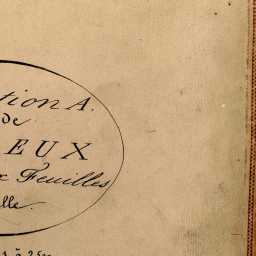 tion A.
de
EUX
x Feuilles
lle.